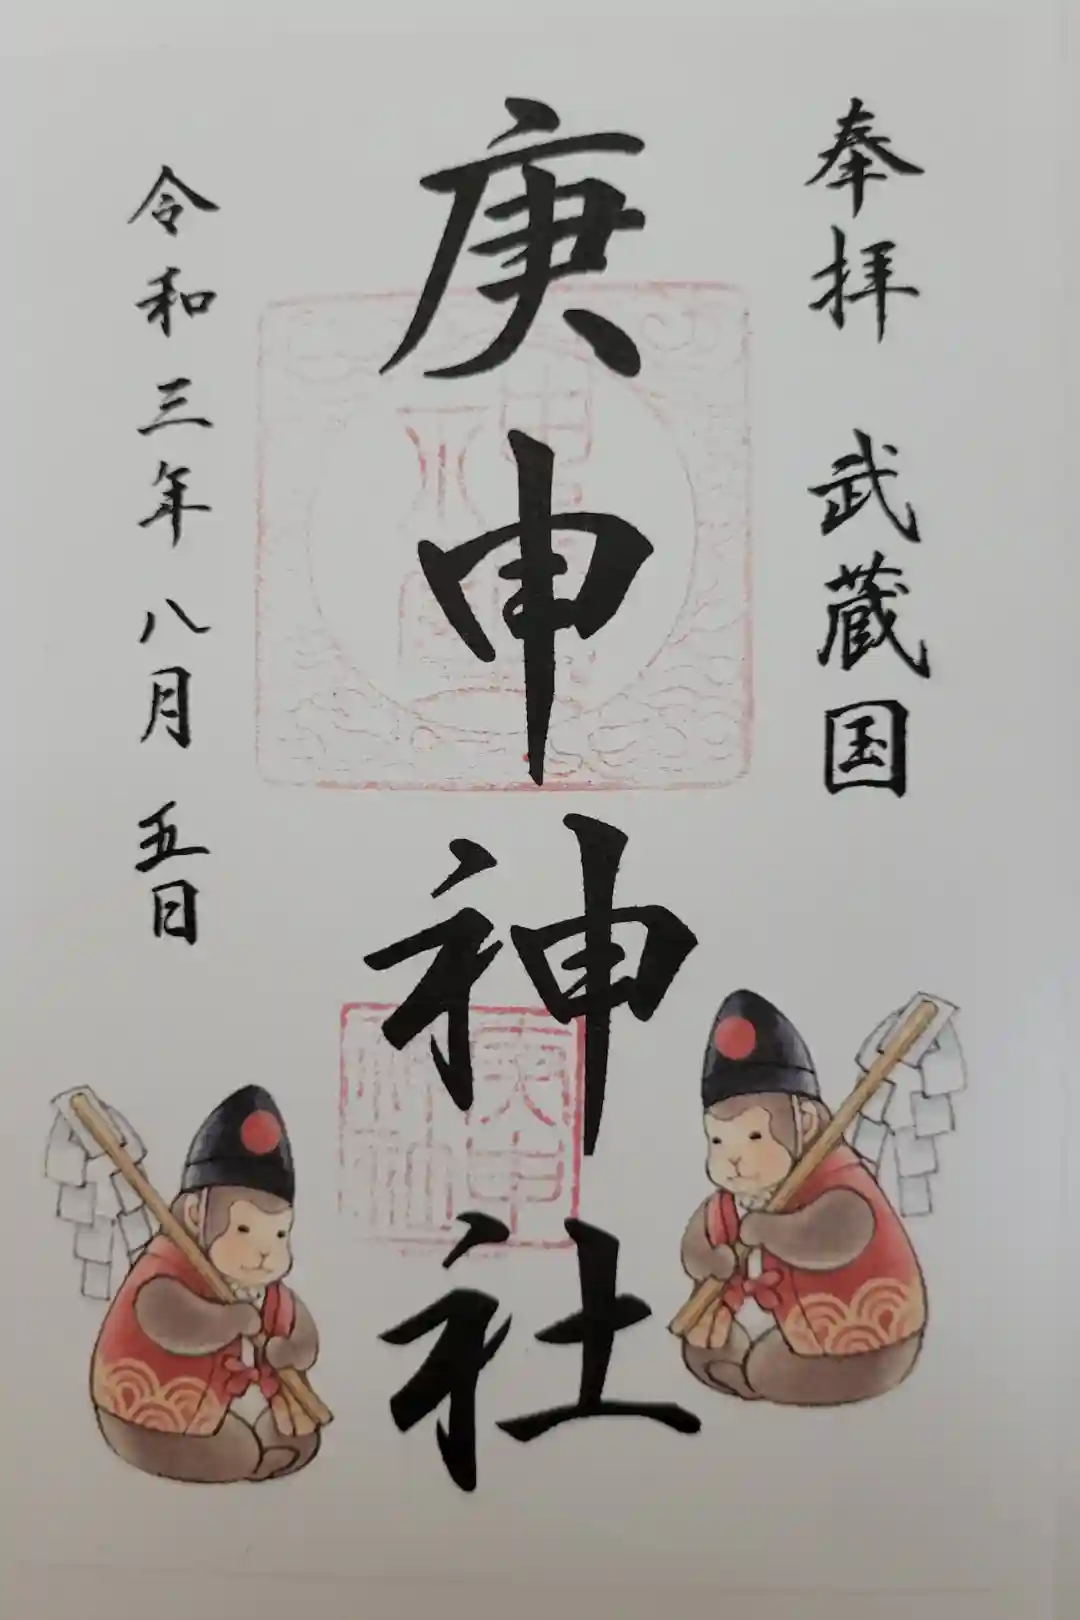 奉拝 武蔵国
庚申神社
令和三年八月五日
庚申
神社